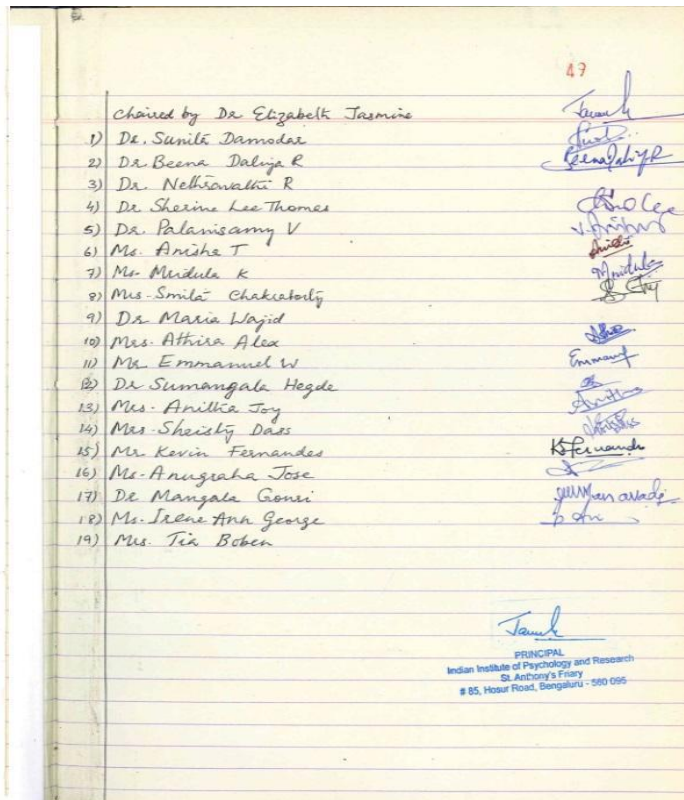 49
Chaired by Dr Elizabeth Jasmine
1) Dr. Sunita Damodar
2) Dr Beena Daliya R Beena Daliya R
3) Dr. Nethravathi R
4) Dr Sherine Lee Thomas
5) Dr. Palanisamy V
6) Ms. Anisha T
7) Ms. Mridula K Mridula
8) Mrs. Smita Chakraborty
9) Dr Maria Wajid
10) Mrs. Athira Alex
11) Mr. Emmanuel W
12) Dr Sumangala Hegde
13) Mrs. Anitha Joy Anitha
14) Mrs Sheisty Dass
15) Mr Kevin Fernandes K Fernandes
16) Ms. Anugraha Jose
17) Dr Mangala Gouri
18) Ms. Irene Ann George
19) Mrs. Tia Boben
PRINCIPAL
Indian Institute of Psychology and Research
St. Anthony's Friary
# 85, Hosur Road, Bengaluru - 560 095